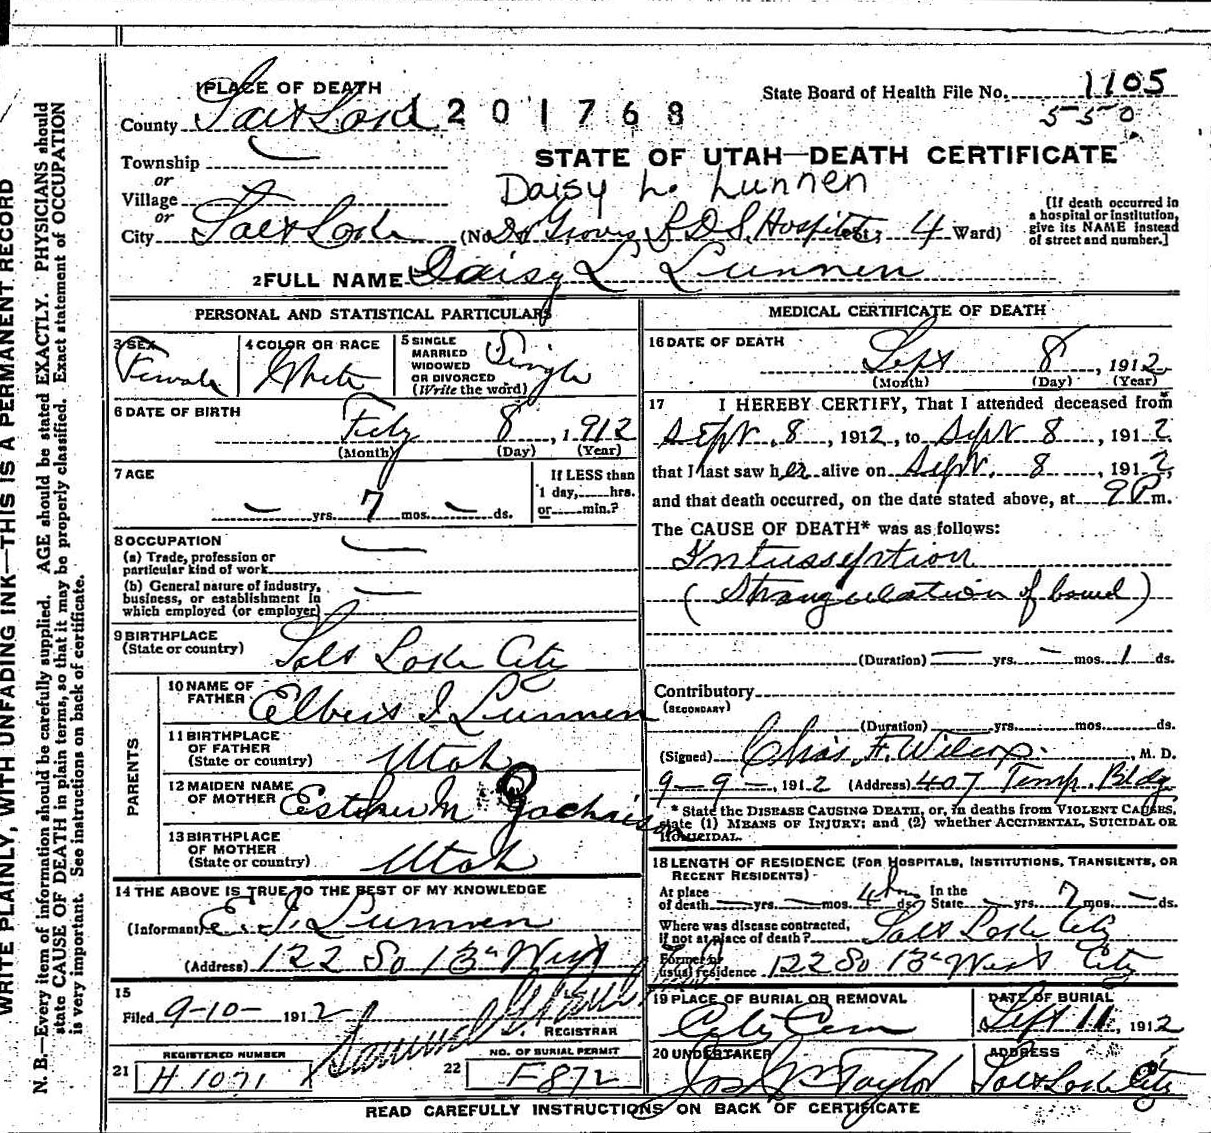 1 PLACE OF DEATH
County Salt Lake
201768
State Board of Health File No. 1105
550
STATE OF UTAH—DEATH CERTIFICATE
Township
or
Village
or
Daisy L. Lunnen
City Salt Lake (No. Dr Groves L D S Hospital St; 4 Ward)
[If death occurred in a hospital or institution, give its NAME instead of street and number.]
2 FULL NAME Daisy L Lunnen
PERSONAL AND STATISTICAL PARTICULARS
3 SEX
Female
4 COLOR OR RACE
White
5 SINGLE MARRIED WIDOWED OR DIVORCED (Write the word)
Single
6 DATE OF BIRTH
Feby 8, 1912
(Month) (Day) (Year)
7 AGE
— yrs. 7 mos. — ds.
If LESS than 1 day,......hrs. or......min.?
8 OCCUPATION
(a) Trade, profession or particular kind of work
(b) General nature of industry, business, or establishment in which employed (or employer)
9 BIRTHPLACE
(State or country) Salt Lake City
PARENTS
10 NAME OF FATHER Elbert I Lunnen
11 BIRTHPLACE OF FATHER (State or country) Utah
12 MAIDEN NAME OF MOTHER Esther M Zachrison
13 BIRTHPLACE OF MOTHER (State or country) Utah
14 THE ABOVE IS TRUE TO THE BEST OF MY KNOWLEDGE
(Informant) E. I. Lunnen
(Address) 122 So 13th West
15
Filed 9-10- 1912
REGISTRAR
REGISTERED NUMBER
21 H 1071
NO. OF BURIAL PERMIT
22 F872
MEDICAL CERTIFICATE OF DEATH
16 DATE OF DEATH
Sept 8, 1912
(Month) (Day) (Year)
17 I HEREBY CERTIFY, That I attended deceased from
Sept. 8, 1912, to Sept 8, 1912
that I last saw her alive on Sept. 8, 1912,
and that death occurred, on the date stated above, at 9 P m.
The CAUSE OF DEATH* was as follows:
Intusseption
(Strangulation of bowel)
(Duration) — yrs. — mos. 1 ds.
Contributory
(SECONDARY)
(Duration) yrs. mos. ds.
(Signed) Chas. F. Wilcox. M. D.
9-9-, 1912 (Address) 407 Temp. Bldg
* State the DISEASE CAUSING DEATH, or, in deaths from VIOLENT CAUSES,
state (1) MEANS OF INJURY; and (2) whether ACCIDENTAL, SUICIDAL OR
HOMICIDAL.
18 LENGTH OF RESIDENCE (FOR HOSPITALS, INSTITUTIONS, TRANSIENTS, OR
RECENT RESIDENTS)
At place of death — yrs. — mos. 4 hrs ds. In the State — yrs. 7 mos. — ds.
Where was disease contracted, if not at place of death? Salt Lake City
Former or usual residence 122 So 13th West City
19 PLACE OF BURIAL OR REMOVAL
City Cem
DATE OF BURIAL
Sept 11, 1912
20 UNDERTAKER
Jos Wm Taylor
ADDRESS
Salt Lake City
READ CAREFULLY INSTRUCTIONS ON BACK OF CERTIFICATE
WRITE PLAINLY, WITH UNFADING INK—THIS IS A PERMANENT RECORD
N. B.—Every item of information should be carefully supplied. AGE should be stated EXACTLY. PHYSICIANS should
state CAUSE OF DEATH in plain terms, so that it may be properly classified. Exact statement of OCCUPATION
is very important. See instructions on back of certificate.